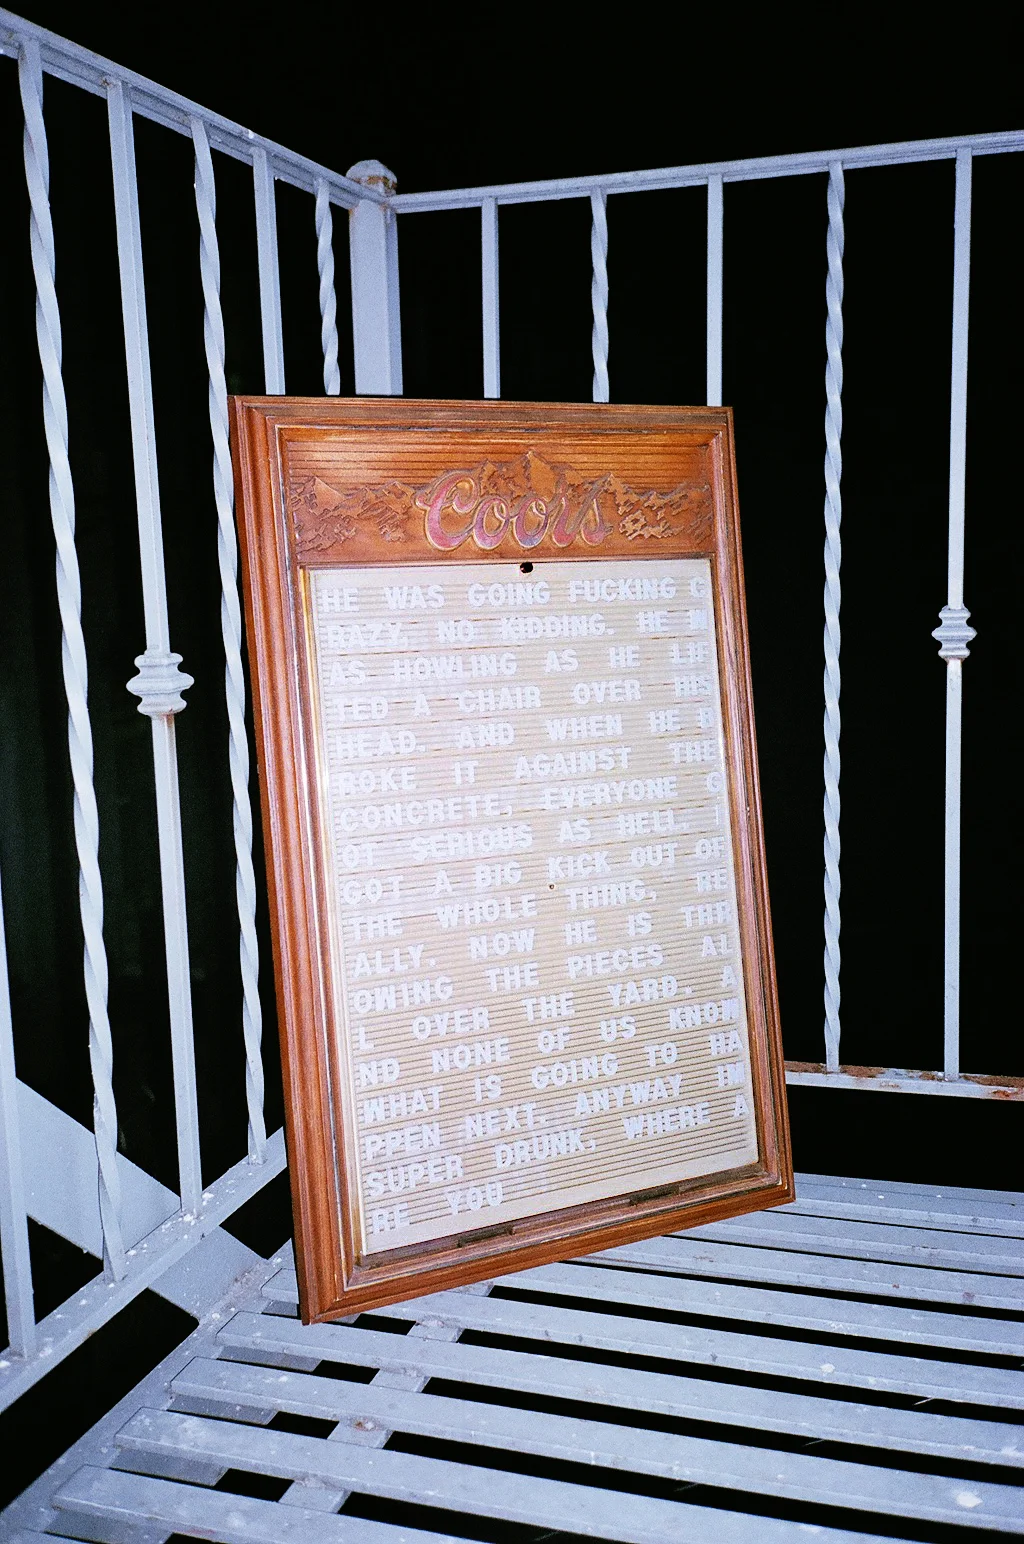 Coors
HE WAS GOING FUCKING C
RAZY. NO KIDDING. HE W
AS HOWLING AS HE LIF
TED A CHAIR OVER HIS
HEAD. AND WHEN HE B
ROKE IT AGAINST THE
CONCRETE, EVERYONE G
OT SERIOUS AS HELL. I
GOT A BIG KICK OUT OF
THE WHOLE THING, RE
ALLY. NOW HE IS THR
OWING THE PIECES AL
L OVER THE YARD. A
ND NONE OF US KNOW
WHAT IS GOING TO HA
PPEN NEXT. ANYWAY IM
SUPER DRUNK, WHERE A
RE YOU